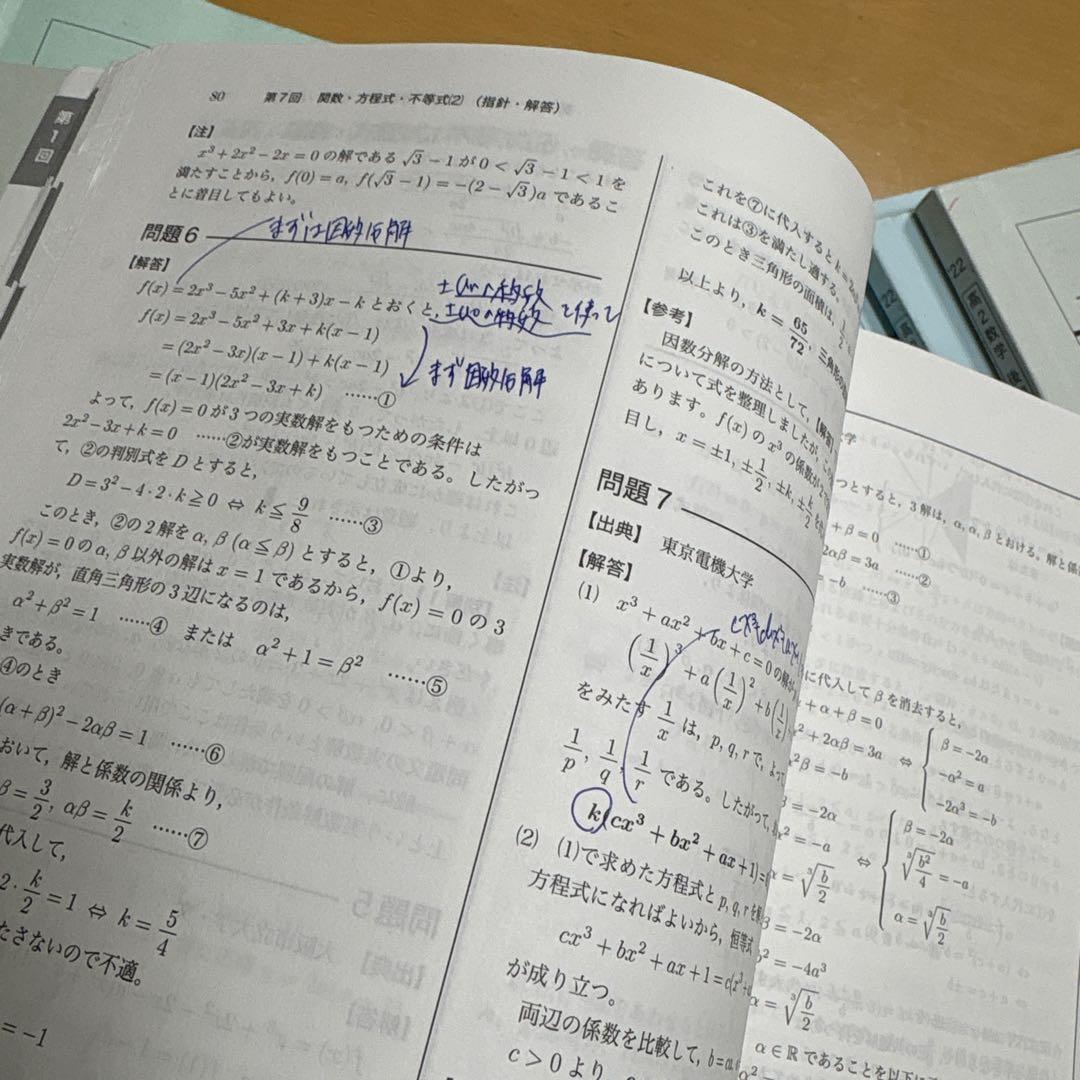 80 第7回 関数・方程式・不等式(2) (指針・解答)
【注】
x³+2x²−2x=0の解である√3−1が0<√3−1<1を
満たすことから,f(0)=a, f(√3−1)=−(2−√3)aであるこ
とに着目してもよい。
まずは因数分解
問題6
【解答】
f(x)=2x³−5x²+(k+3)x−kとおくと,
f(x)=2x³−5x²+3x+k(x−1)
=(2x²−3x)(x−1)+k(x−1)
=(x−1)(2x²−3x+k) ……①
まず因数分解
よって,f(x)=0が3つの実数解をもつための条件は
2x²−3x+k=0 ……②が実数解をもつことである。したがっ
て,②の判別式をDとすると,
D=3²−4·2·k≧0 ⇔ k≦9/8 ……③
このとき,②の2解をα, β(α≦β)とすると,①より,
f(x)=0のα, β以外の解はx=1であるから,f(x)=0の3
実数解が,直角三角形の3辺になるのは,
α²+β²=1 ……④ または α²+1=β² ……⑤
きである。
④のとき
(α+β)²−2αβ=1 ……⑥
おいて,解と係数の関係より,
β=3/2, αβ=k/2 ……⑦
代入して,
2·k/2=1 ⇔ k=5/4
たさないので不適。
=−1
これを⑦に代入するとk=
これは③を満たし適する。
このとき三角形の面積は,
以上より,k=65/72,三角形の
【参考】
因数分解の方法として,【解答】
について式を整理しましたが,
あります。f(x)のx³の係数が
目し,x=±1, ±1/2, ±k, ±k/2
問題7
【出典】 東京電機大学
【解答】
(1) x³+ax²+bx+c=0の解が
(1/x)³+a(1/x)²+b(1/x)
をみたす1/xは,p, q, rで,よって
1/p, 1/q, 1/rである。したがって,
k(cx³+bx²+ax+1)=
(2) (1)で求めた方程式とp, q, rを解
方程式になればよいから,恒等式
cx³+bx²+ax+1=c(x³+
が成り立つ。
両辺の係数を比較して,b=
c>0より,
第1回
'22
'22 高2数学
つとすると,3解は,α, α, βとおける。解と係
+β=0 ……①
2αβ=3a ……②
=−b ……③
に代入してβを消去すると,
+α+β=0
²+2αβ=3a
²β=−b
⇔
β=−2α
−α²=a
−2α³=−b
β=−2α
²=−a
α=∛(b/2)
⇔
β=−2α
∛(b²/4)=−a
α=∛(b/2)
β=−2α
b²=−4a³
α=∛(b/2)
α∈ℝであることを以下に